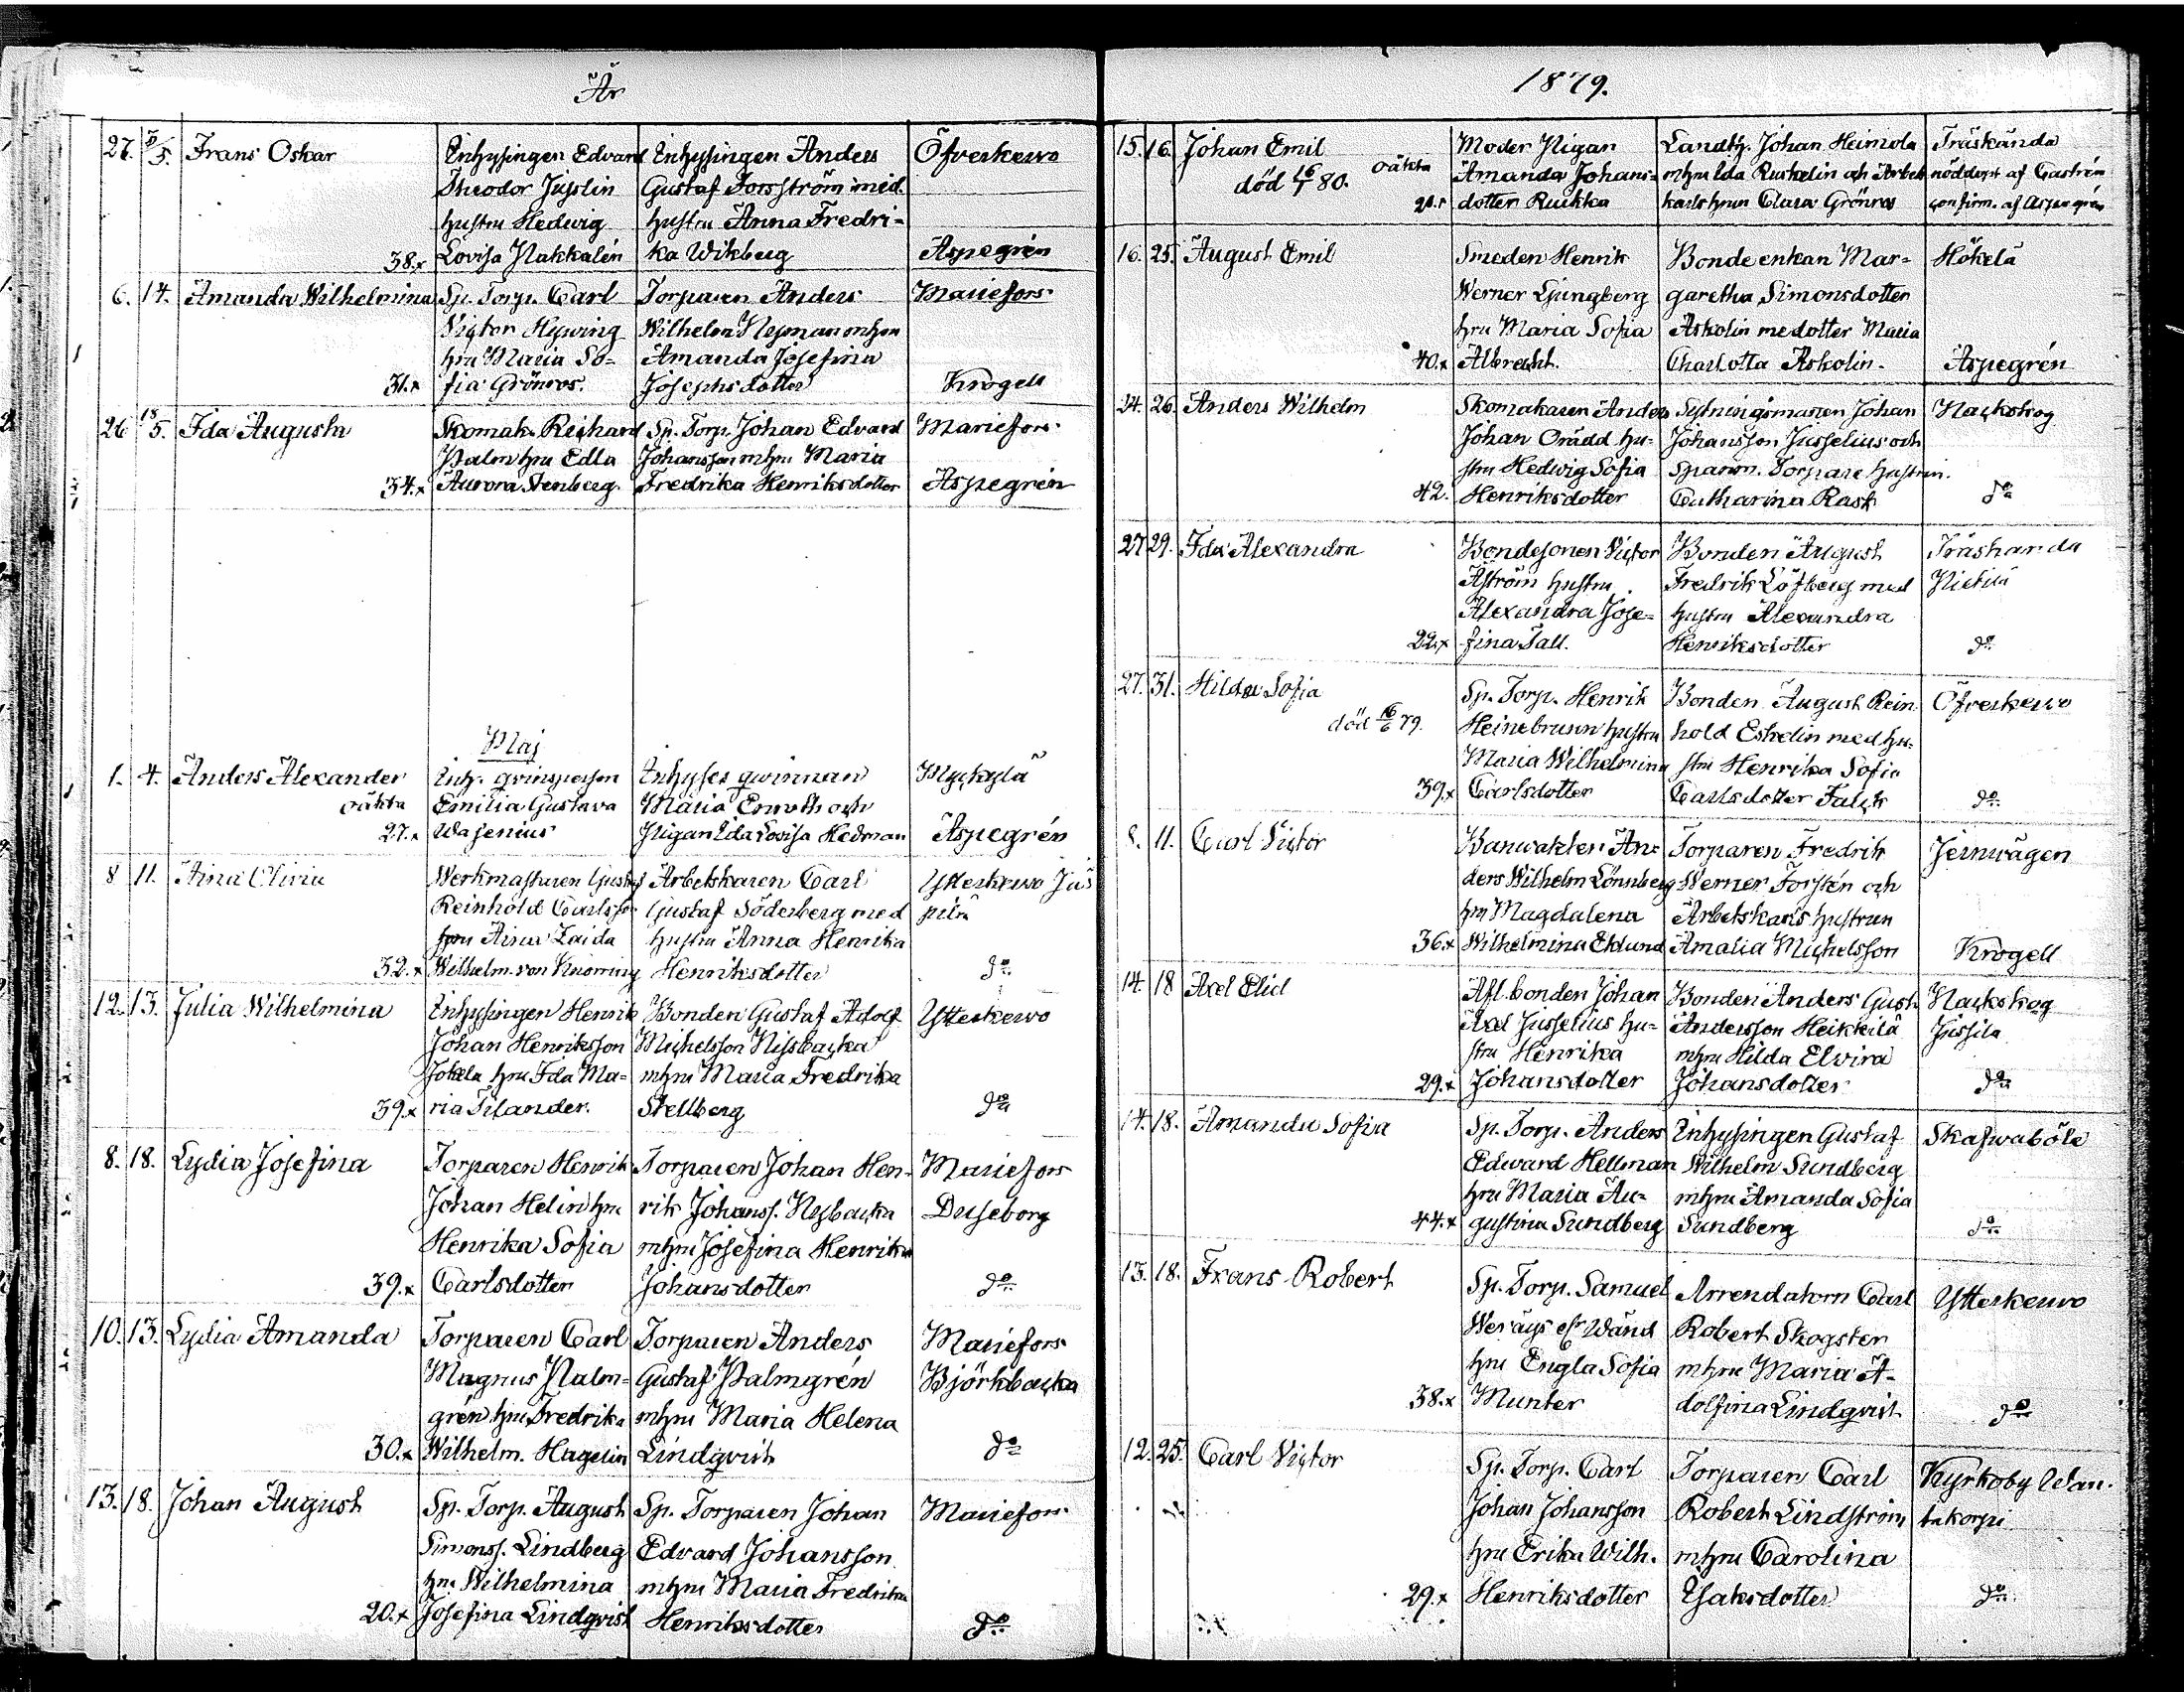 År
27. 5/5. Frans Oskar Inhysingen Edvard Inhysingen Anders Öfverkervo
Theodor Juslin Gustaf Forsström med
hustru Hedwig hustru Anna Fredri-
38.x Lovisa Nakkalén ka Wikberg Aspegrén
6. 14. Amanda Wilhelmina Sp. Torp. Carl Torparen Anders Mariefors
Victor Wilhelm Nyman mhru
hru Maria So- Amanda Josefina
31.x fia Grönros. Josephsdotter Krogell
26 18/5. Ida Augusta Skomak. Richard Sp. Torp. Johan Edvard Mariefors
Palm hru Edla Johansson mhru Maria
34.x Aurora Stenberg. Fredrika Henriksdotter Aspegrén
Maj
1. 4. Anders Alexander Inh. qvinsperson Inhyses qvinnan
oäkta Emilia Gustava Maria och
27.x Wasenius Pigan Ida Lovisa Hedman Aspegrén
8 11. Aina Olivia Werkmästaren Gustaf Arbetskaren Carl Ytterkervo
Reinhold Carlsson Gustaf Söderberg med
hru Aina Zaida hustru Anna Henrika
32.x Wilhelm. von Knorring Henriksdotter do
12. 13. Julia Wilhelmina Inhysingen Henrik Bonden Gustaf Adolf Ytterkervo
Johan Henriksson Michelsson Nissbacka
Jokela hru Ida Ma- mhru Maria Fredrika
39.x ria Tilander. Stellberg do
8. 18. Lydia Josefina Torparen Henrik Torparen Johan Hen- Mariefors
Johan Helin hru rik Johanss. Nybacka Duseborg
Henrika Sofia mhru Josefina Henrika
39.x Carlsdotter Johansdotter do
10. 13. Lydia Amanda Torparen Carl Torparen Anders Mariefors
Magnus Palm- Gustaf Palmgrén Björkbacka
grén hru Fredrika mhru Maria Helena
30.x Wilhelm. Hagelin Lindqvist do
13. 18. Johan August Sp. Torp. August Sp. Torparen Johan Mariefors
Simonss. Lindberg Edvard Johansson
hru Wilhelmina mhru Maria Fredrika
20.x Josefina Lindqvist Henriksdotter do
1879.
15. 16. Johan Emil Moder Pigan Landtbr. Johan Heimola Träskända
död 16/1 80. oäkta Amanda Johans- mhru Ida Ruskelin och Arbets nöddöpt af Castrén
dotter Ruikka karlshrun Clara Grönros confirm. af Aspegrén
16. 25. August Emil Smeden Henrik Bondeenkan Mar- Hökelä
Werner Ljungberg garetha Simonsdotter
hru Maria Sofia Askolin m dotter Maria
40.x Albrecht. Charlotta Askolin. Aspegrén
24. 26. Anders Wilhelm Skomakaren Anders Sytningsmannen Johan Nackskog
Johan Orädd hu- Johansson Jusselius och
stru Hedwig Sofia Spanm. Torpare hustrun.
42. Henriksdotter Catharina Rask do
27 29. Ida Alexandra Bondesonen Victor Bonden August Träskanda
Åström hustru Fredrik Löfberg med
Alexandra Jose- hustru Alexandra
22.x fina Tall. Henriksdotter do
27. 31. Hilda Sofia Sp. Torp. Henrik Bonden August Rein- Öfverkervo
död 16/6 79. Heinebrunn hustru hold Eskelin med hu-
Maria Wilhelmina stru Henrika Sofia
39.x Carlsdotter Carlsdotter Falck do
8. 11. Carl Victor Banwakten An- Torparen Fredrik Jernvägen
ders Wilhelm Lönnberg Werner Forstén och
hru Magdalena Arbetskarls hustrun
36.x Wilhelmina Eklund Amalia Michelsson Krogell
14. 18 Axel Elid Afl. bonden Johan Bonden Anders Gust. Nackskog
Axel Jusselius hu- Andersson Heikkilä Jussila
stru Henrika mhru Hilda Elvira
29.x Johansdotter Johansdotter do
14. 18. Amanda Sofia Sp. Torp. Anders Inhysingen Gustaf Skafwaböle
Edward Hellman Wilhelm Sundberg
hru Maria Au- mhru Amanda Sofia
44.x gustina Sundberg Sundberg do
13. 18. Frans Robert Sp. Torp. Samuel Arrendatorn Carl Ytterkervo
Robert Skogster
hru Engla Sofia mhru Maria A-
38.x Munter dolfina Lindqvist do
12. 25. Carl Victor Sp. Torp. Carl Torparen Carl Kyrkoby Wan-
Johan Johansson Robert Lindström takorpi
hru Erika Wilh. mhru Carolina
29.x Henriksdotter Isaksdotter do